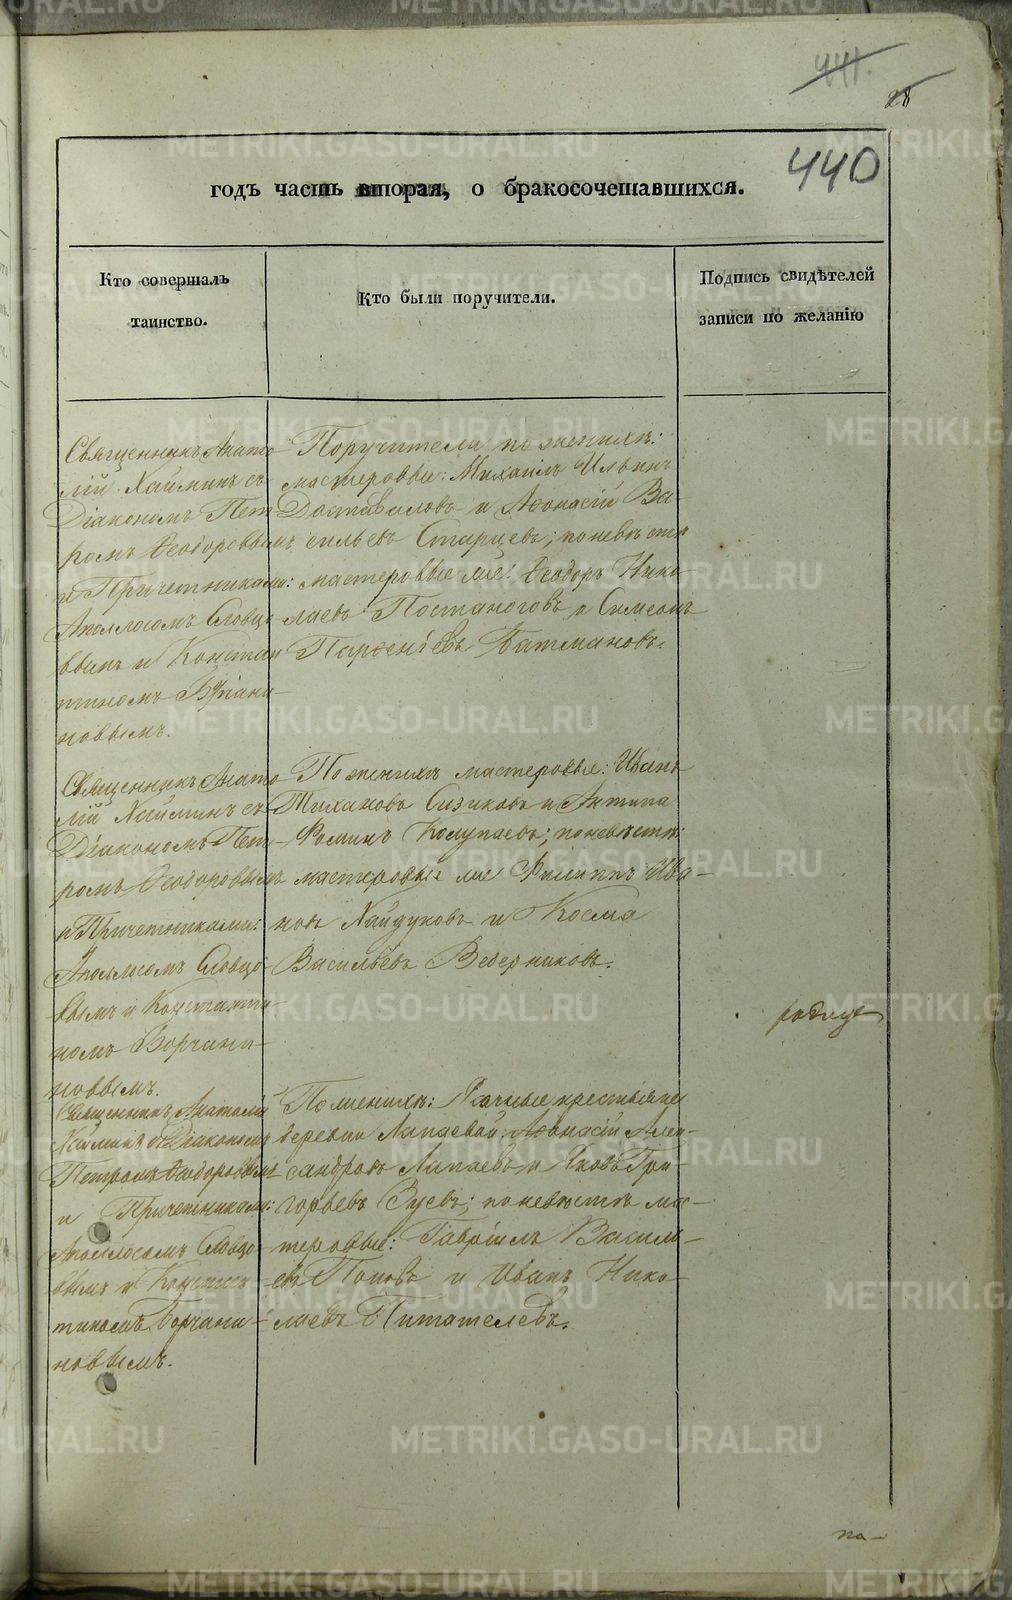 441.
28
440
годъ часть вторая, о бракосочетавшихся.
Кто совершалъ
таинство.
Кто были поручители.
Подпись свидѣтелей
записи по желанію
Священникъ Анато-
лій Хайминъ съ
Діакономъ Пет-
ромъ Ѳеодоровымъ
и Причетниками:
Аполлосомъ Словцо-
вымъ и Констан
тиномъ
новымъ.
Поручители по женихѣ:
мастеровые: Михаилъ Ильинъ
Доставаловъ и Аѳонасій Ва-
сильевъ Старцевъ; по невѣстѣ
мастеровые же: Ѳеодоръ Нико-
лаевъ Постаноговъ и Симеонъ
Парѳеніевъ Батмановъ.
Священникъ Анато-
лій Хайминъ съ
Діакономъ Пет-
ромъ Ѳеодоровымъ
и Причетниками:
Аполлосомъ Словцо-
вымъ и Константи-
номъ Борчани-
новымъ.
По женихѣ мастеровые: Иванъ
Тихановъ Сизиковъ и Антипа
Фоминъ Колупаевъ; по невѣстѣ:
мастеровые же Филиппъ Ива-
новъ Хайдуковъ и Косма
Васильевъ Ведерниковъ.
Священникъ Анатолій
Хайминъ съ Діакономъ
Петромъ Ѳеодоровымъ
и Причетниками:
Аполлосомъ Словцо-
вымъ и Констан
тиномъ Борчани-
новымъ.
По женихѣ: крестьяне
деревни Лапаевой: Аѳонасій Алек-
сандровъ Лапаевъ и Яковъ Гри-
горьевъ Зуевъ; по невѣстѣ мас-
теровые: Гавріилъ Василь-
евъ Поповъ и Иванъ Нико-
лаевъ Питателевъ.
по-
METRIKI.GASO-URAL.RU